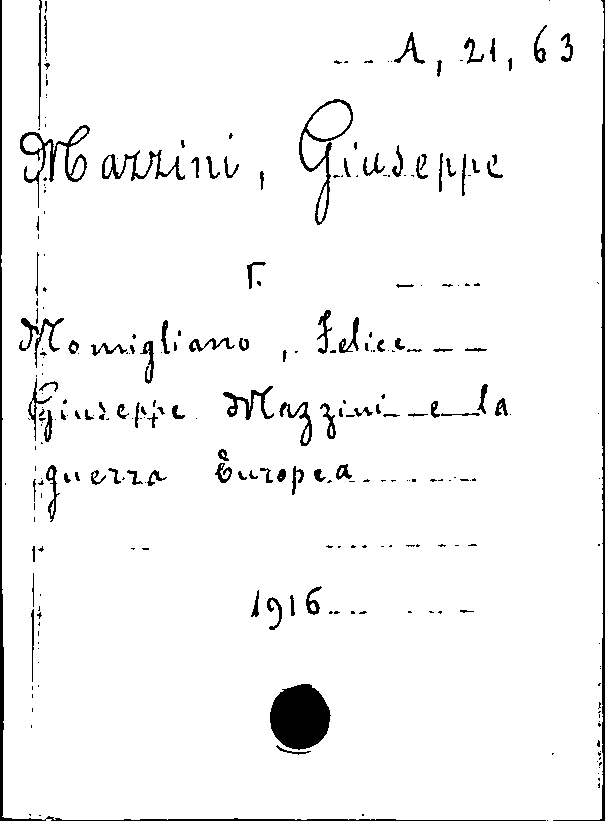 A, 21, 63
Mazzini, Giuseppe
r.
Momigliano, Felice
Giuseppe Mazzini e la
guerra Europea
1916